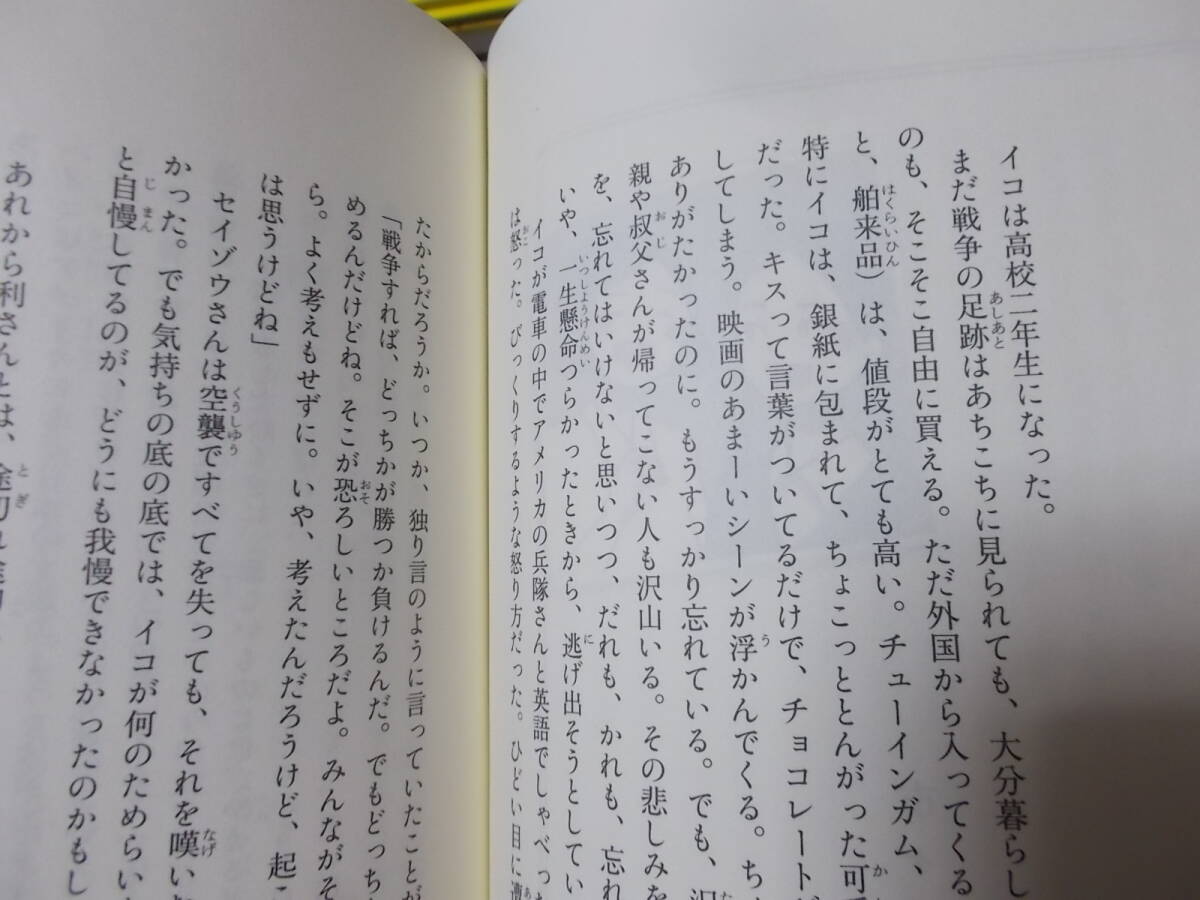 イコは高校二年生になった。
まだ戦争の足跡はあちこちに見られても、大分暮らし
のも、そこそこ自由に買える。ただ外国から入ってくる
と、舶来品）は、値段がとても高い。チューインガム、
特にイコは、銀紙に包まれて、ちょこっととんがった可
だった。キスって言葉がついてるだけで、チョコレート
してしまう。映画のあまーいシーンが浮かんでくる。
ありがたかったのに。もうすっかり忘れている。でも、沢
親や叔父さんが帰ってこない人も沢山いる。その悲しみを
を、忘れてはいけないと思いつつ、だれも、かれも、忘れ
いや、一生懸命つらかったときから、逃げ出そうとしてい
イコが電車の中でアメリカの兵隊さんと英語でしゃべった
は怒った。びっくりするような怒り方だった。ひどい目に遭
たからだろうか。いつか、独り言のように言っていたことが
「戦争すれば、どっちかが勝つか負けるんだ。でもどっち
めるんだけどね。そこが恐ろしいところだよ。みんながそ
ら。よく考えもせずに。いや、考えたんだろうけど、起こ
は思うけどね」
セイゾウさんは空襲ですべてを失っても、それを嘆い
かった。でも気持ちの底の底では、イコが何のためらい
と自慢してるのが、どうにも我慢できなかったのかもし
あれから利さんとは、途切れ途切